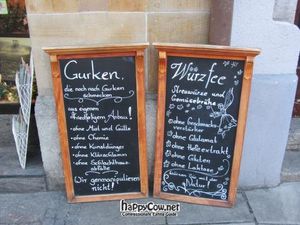 Gurken,
die noch nach Gurken
schmecken
aus eigenem
friedfertigen Anbau!
• ohne Mist und Gülle
• ohne Chemie
• ohne Kunstdünger
• ohne Klärschlamm
• ohne Schlachthaus-
abfälle
Wir germanipulieren
nicht!
Würzfee
Streuwürze und
Gemüsebrühe
• ohne Geschmacks-
verstärker
• ohne Glutamat
• ohne Hefeextrakt
• ohne Gluten
• ohne Laktose
Natur!
happyCow.net
Compassionate Eating Guide